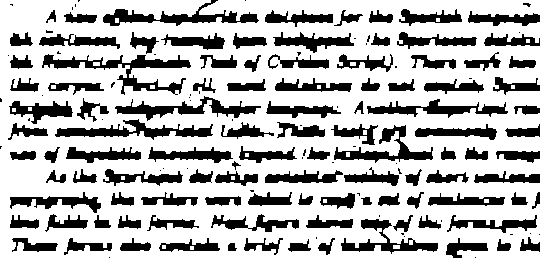 A new offline handwritten database for the Spanish language
ish sentences, has recently been developed: the Spartacus databa
ish Restricted-domain Task of Cursive Script). There were two
this corpus. First of all, most databases do not contain Spani
Spanish is a widespread major language. Another important rea
from semantic-restricted tasks. These tasks are commonly used
use of linguistic knowledge beyond the lexicon level in the recog
As the Spartacus database consisted mainly of short sentence
paragraphs, the writers were asked to copy a set of sentences in f
line fields in the forms. Next figure shows one of the forms used
These forms also contain a brief set of instructions given to the